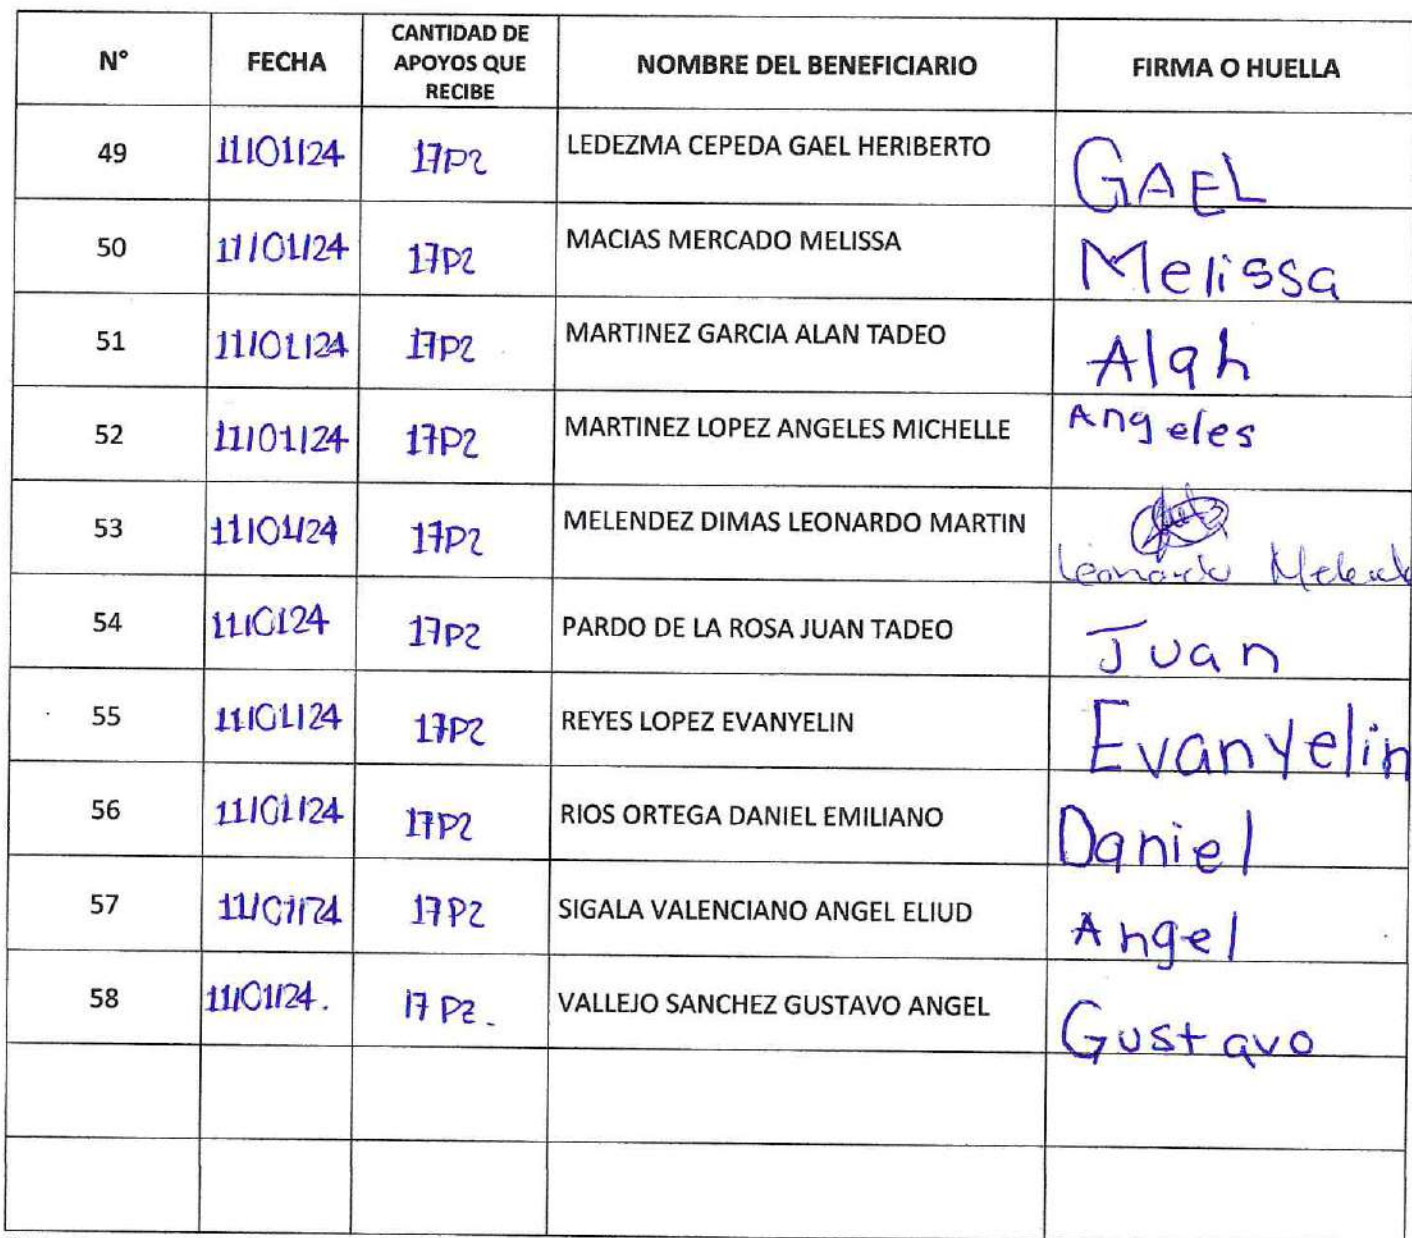 N° FECHA CANTIDAD DE APOYOS QUE RECIBE NOMBRE DEL BENEFICIARIO FIRMA O HUELLA
49 11/01/24 17PZ LEDEZMA CEPEDA GAEL HERIBERTO GAEL
50 11/01/24 17PZ MACIAS MERCADO MELISSA Melissa
51 11/01/24 17PZ MARTINEZ GARCIA ALAN TADEO Alan
52 11/01/24 17PZ MARTINEZ LOPEZ ANGELES MICHELLE Angeles
53 11/01/24 17PZ MELENDEZ DIMAS LEONARDO MARTIN Leonardo
54 11/0124 17PZ PARDO DE LA ROSA JUAN TADEO Juan
55 11/01/24 17PZ REYES LOPEZ EVANYELIN Evanyelin
56 11/01/24 17PZ RIOS ORTEGA DANIEL EMILIANO Daniel
57 11/01/24 17PZ SIGALA VALENCIANO ANGEL ELIUD Angel
58 11/01/24. 17 PZ. VALLEJO SANCHEZ GUSTAVO ANGEL Gustavo